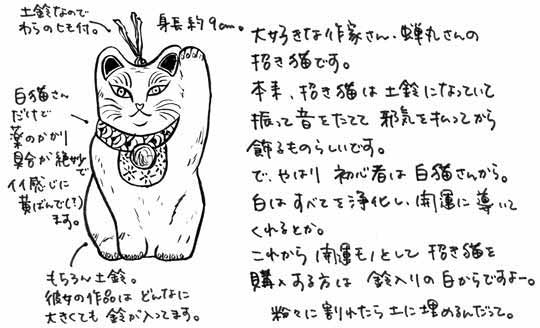 土鈴なので
わらのヒモ付。
身長約9cm。
白猫さん
だけで
薬のかかり
具合が絶妙で
イイ感じに
黄ばんで(?)
ます。
もちろん土鈴。
彼女の作品は どんなに
大きくても 鈴が入ってます。
大好きな作家さん・蝉丸さんの
招き猫です。
本来、招き猫は土鈴になっていて
振って音をたてて 邪気を払ってから
飾るものらしいです。
で、やはり 初心者は 白猫さんから。
白はすべてを浄化し、開運に導いて
くれるとか。
これから 開運モノとして 招き猫を
購入する方は 鈴入りの白からですよー。
粉々に割れたら土に埋めるんだって。